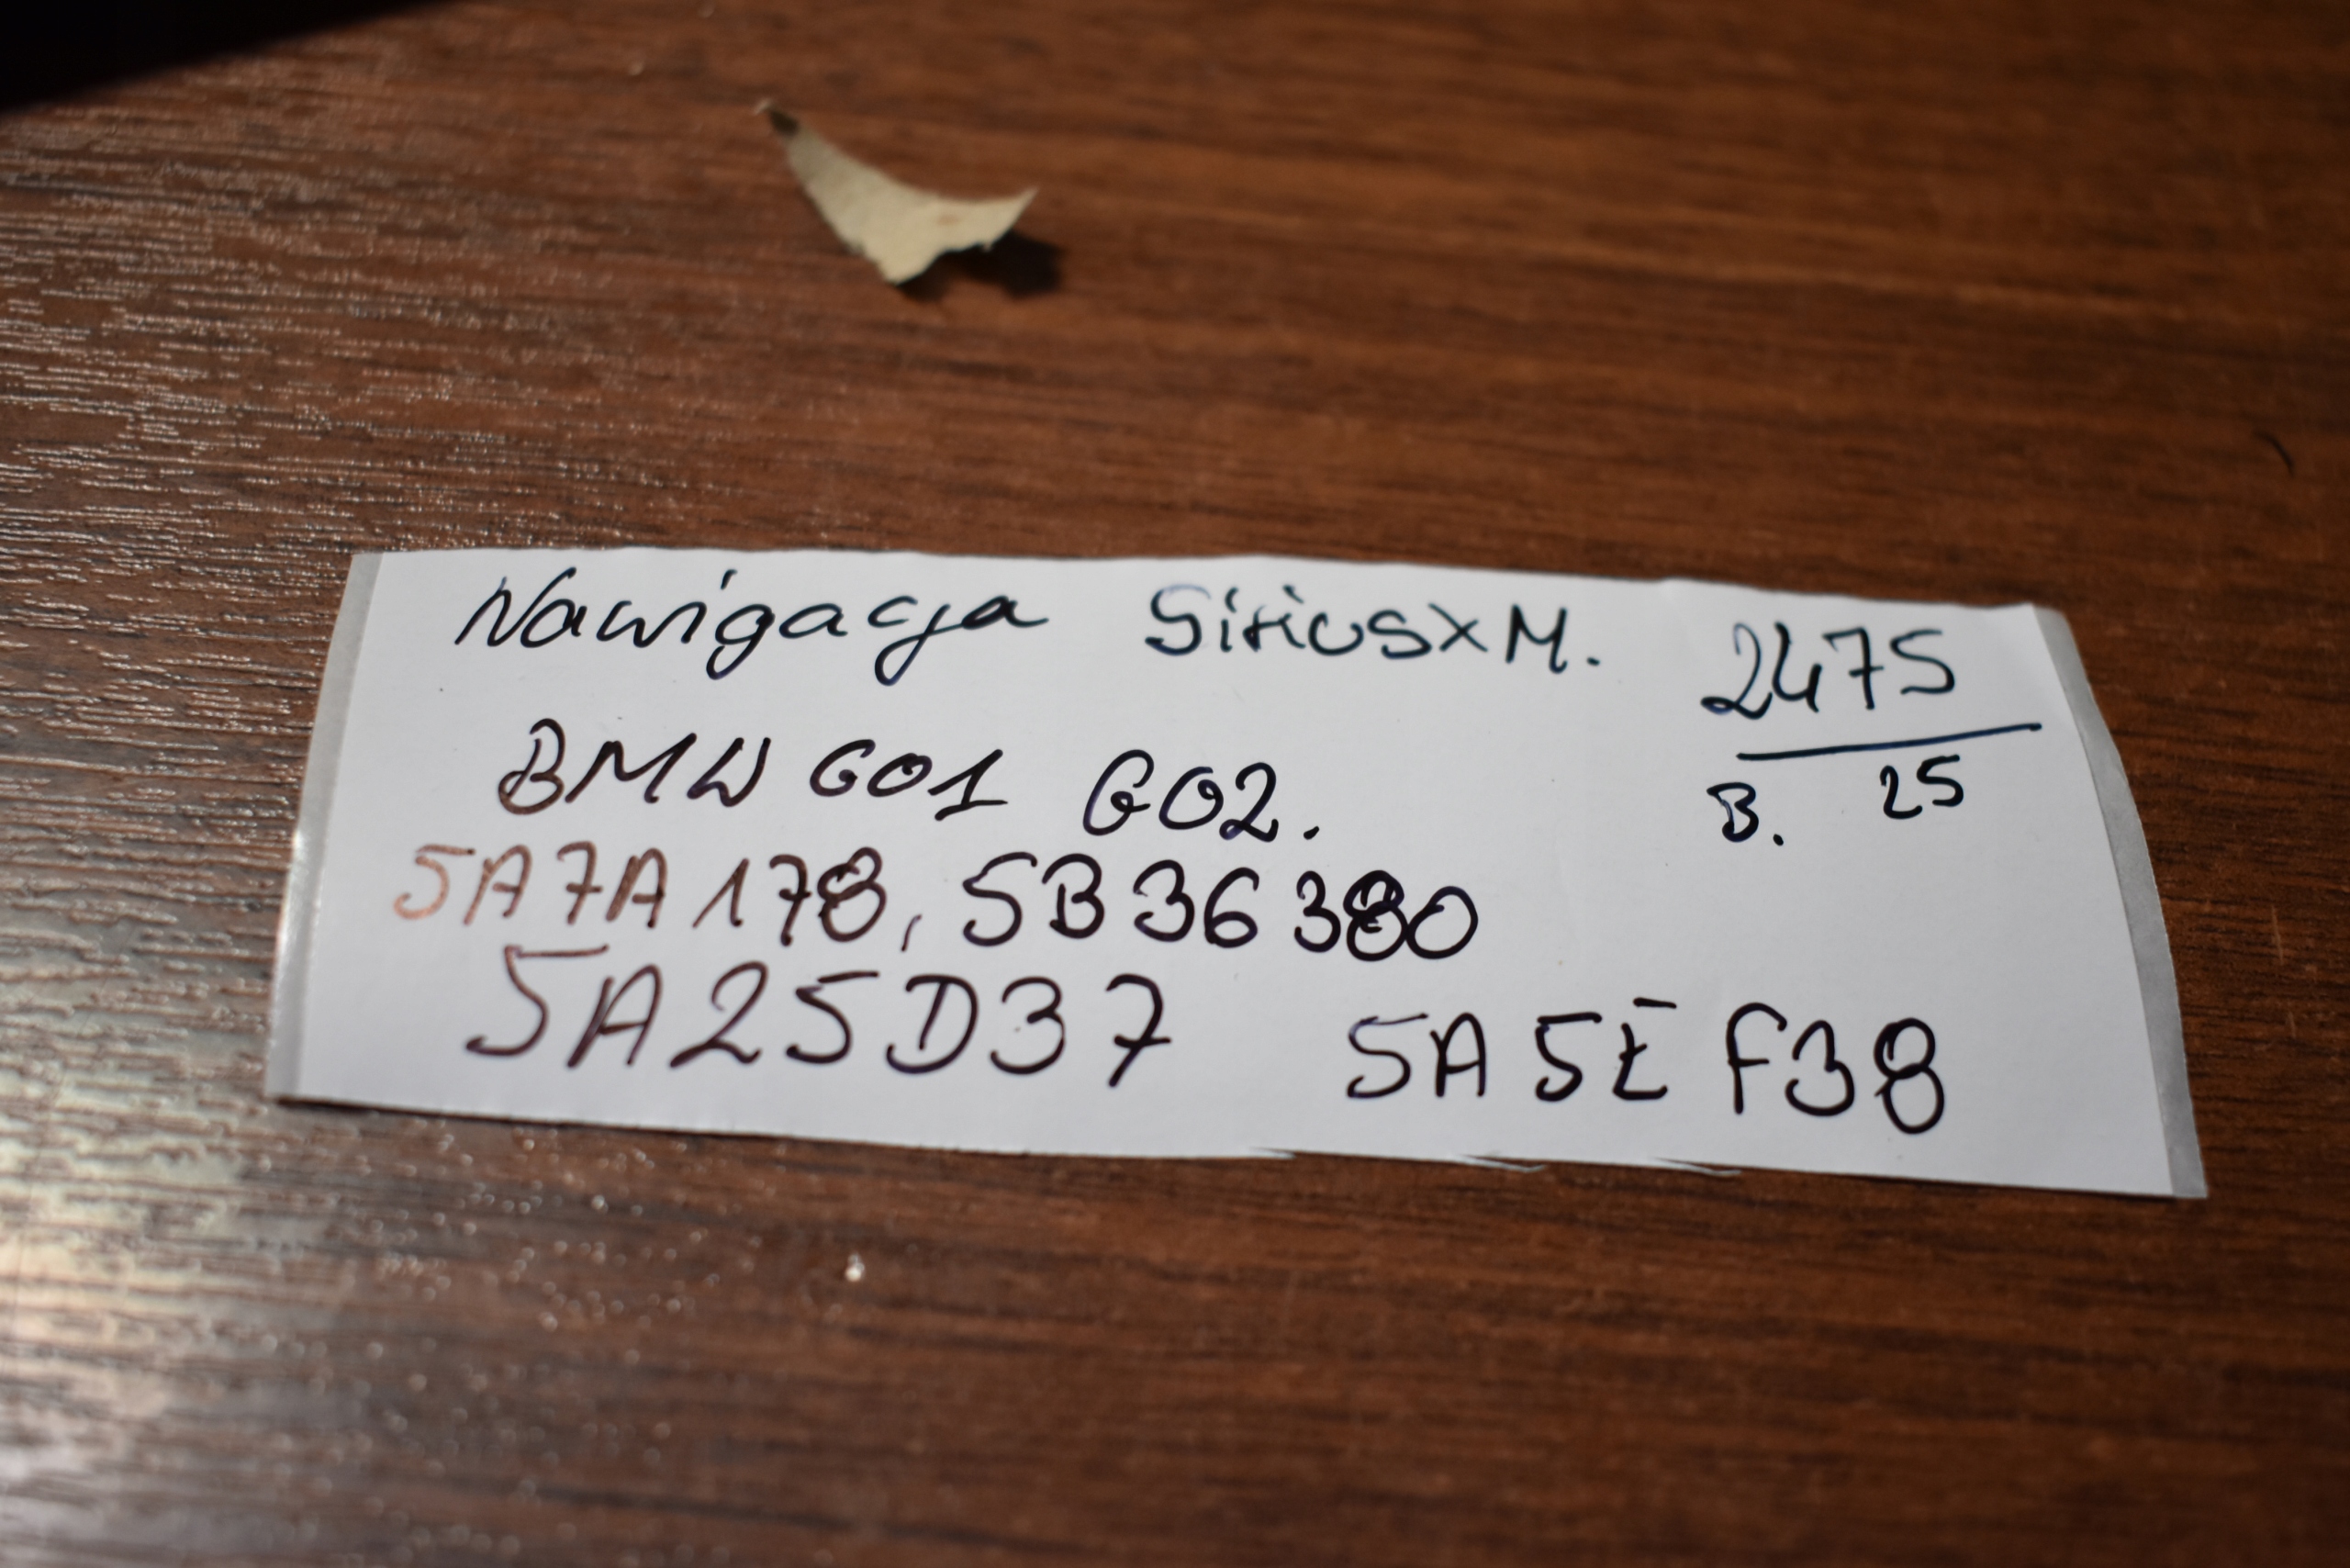 Nawigacja SiriusXM. 2475
BMW G01 G02. B. 25
5A7A178, 5B36380
5A25D37 5A5EF38